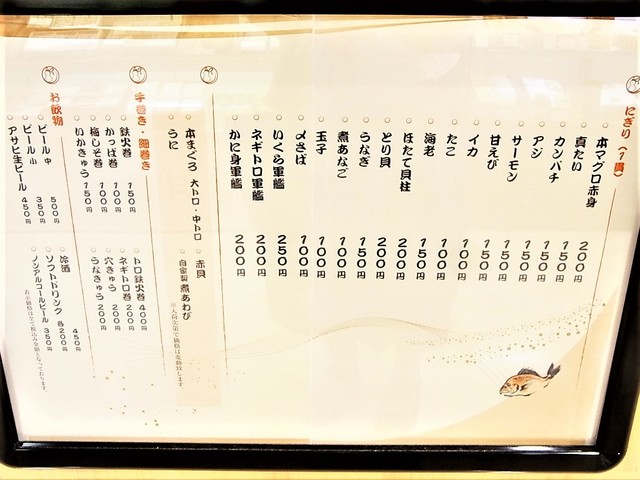 にぎり（1貫）
本マグロ赤身 200円
真たい 150円
カンパチ 150円
アジ 150円
サーモン 150円
甘えび 150円
イカ 100円
たこ 100円
海老 150円
ほたて貝柱 200円
とり貝 200円
うなぎ 150円
煮あなご 100円
玉子 100円
〆さば 100円
いくら軍艦 250円
ネギトロ軍艦 200円
かに身軍艦 200円
本まぐろ 大トロ・中トロ
うに
赤貝
自家製煮あわび
※入荷次第で価格は変動致します。
手巻き・細巻き
鉄火巻 150円
かっぱ巻 100円
梅しそ巻 100円
いかきゅう 150円
トロ鉄火巻 400円
ネギトロ巻 200円
穴きゅう 200円
うなきゅう 200円
お飲物
ビール 中 500円
ビール 小 350円
アサヒ生ビール 450円
冷酒 450円
ソフトドリンク 各200円
ノンアルコールビール 350円
表示価格は全て税込み金額となっております。